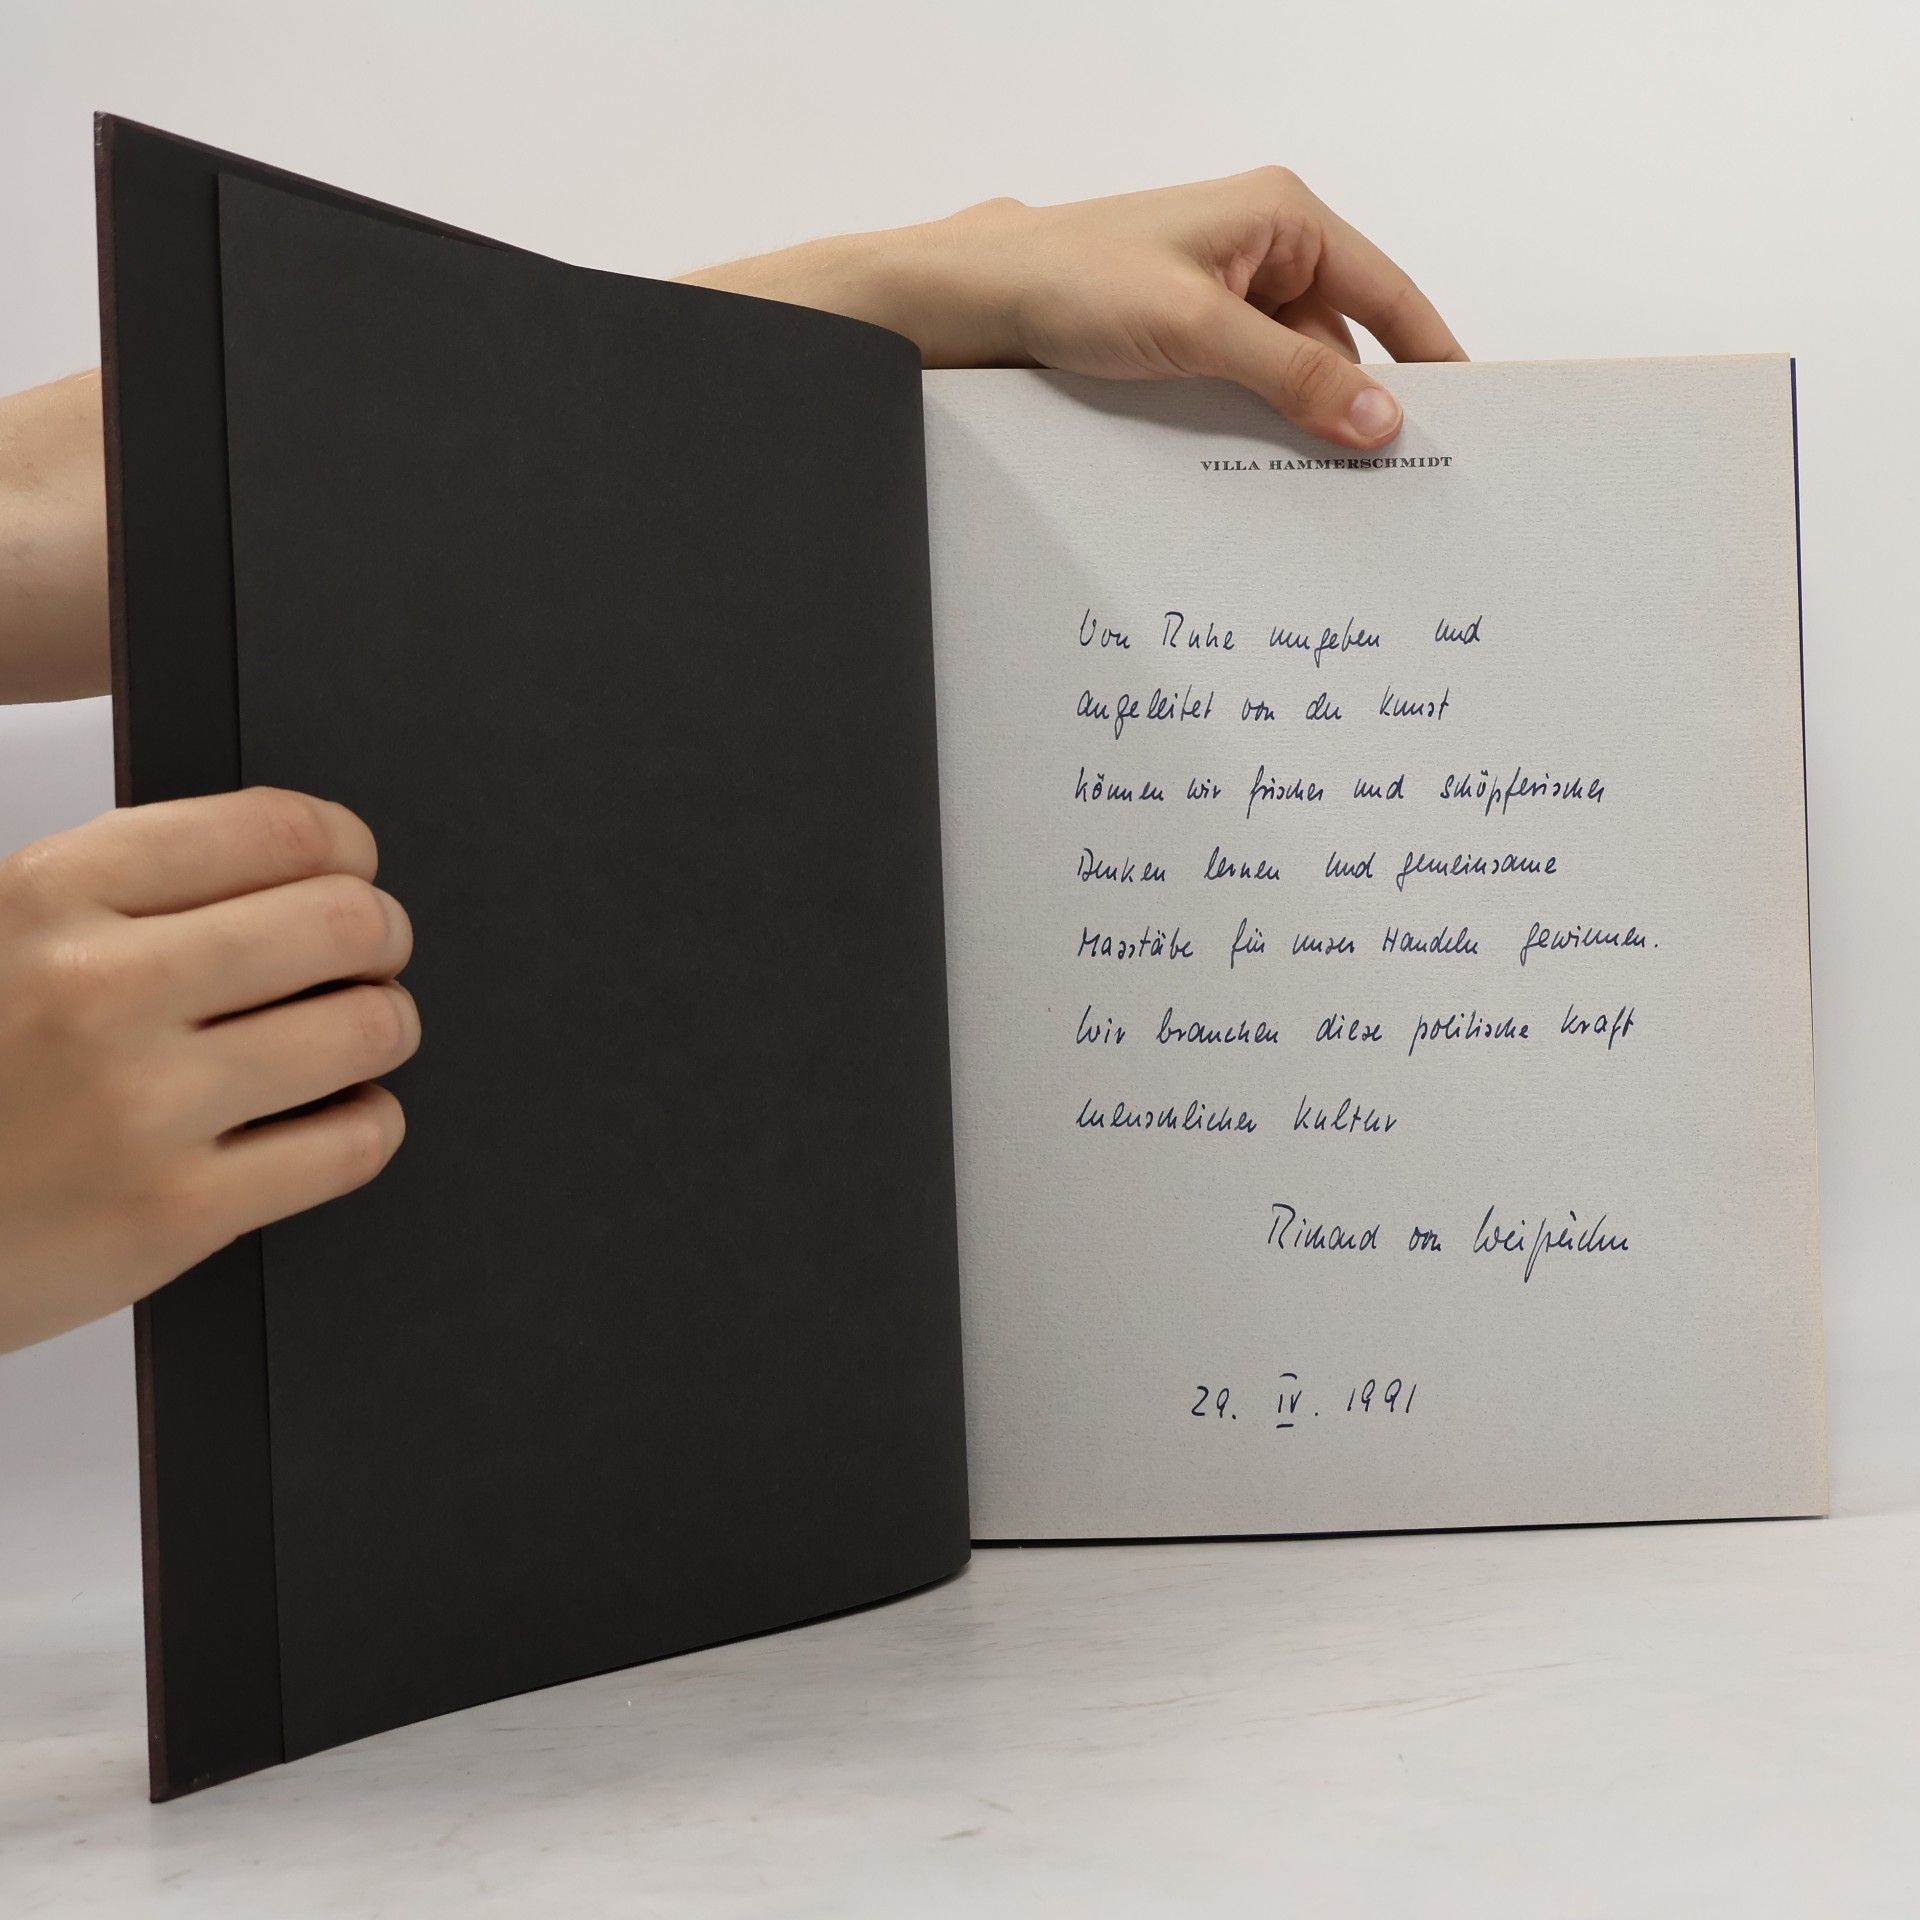 VILLA HAMMERSCHMIDT
Von Ruhe umgeben und
angeleitet von der Kunst
können wir frisches und schöpferisches
Denken lernen und gemeinsame
Massstäbe für unser Handeln gewinnen.
Wir brauchen diese politische Kraft
menschlicher Kultur
Richard von Weizsäcker
29. IV. 1991